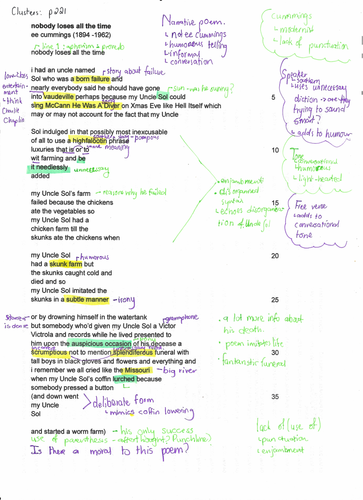 Clusters: p221
nobody loses all the time
ee cummings (1894 -1962)
Narrative poem.
↳ not ee cummings
↳ humorous telling
↳ informal
↳ conversation
cummings
↳ modernist
lack of punctuation
i had an uncle named
→ story about failure
Sol who was a born failure and
nearly everybody said he should have gone
into vaudeville perhaps because my Uncle Sol could
sing McCann He Was A Diver on Xmas Eve like Hell Itself which
may or may not account for the fact that my Uncle
5
Speaker
↳ uses unnecessary
diction → are they
trying to sound
smart?
↳ adds to humour
Sol indulged in that possibly most inexcusable
of all to use a highfalootin phrase
luxuries that is or to
wit farming and be
it needlessly
added
10
unnecessary
Tone
conversational
humorous
light-hearted
my Uncle Sol's farm
failed because the chickens
ate the vegetables so
my Uncle Sol had a
chicken farm till the
skunks ate the chickens when
15
enjambment
disorganised
syntax
Free verse
adds to
conversational
tone
my Uncle Sol
had a skunk farm but
the skunks caught cold and
died and so
my Uncle Sol imitated the
skunks in a subtle manner
20
25
humorous
→ irony
or by drowning himself in the watertank
but somebody who'd given my Uncle Sol a Victor
Victrola and records while he lived presented to
him upon the auspicious occasion of his decease a
scrumptious not to mention splendiferous funeral with
tall boys in black gloves and flowers and everything and
i remember we all cried like the Missouri
when my Uncle Sol's coffin lurched because
somebody pressed a button
(and down went
my Uncle
Sol
30
35
gramophone
→ big river
a lot more info about
his death.
poem imitates life
fantastic funeral
deliberate form
↳ mimics coffin lowering
and started a worm farm)
→ his only success
use of parenthesis - afterthought? Punchline?
Is there a moral to this poem?
lack of (use of)
↳ punctuation
↳ enjambment